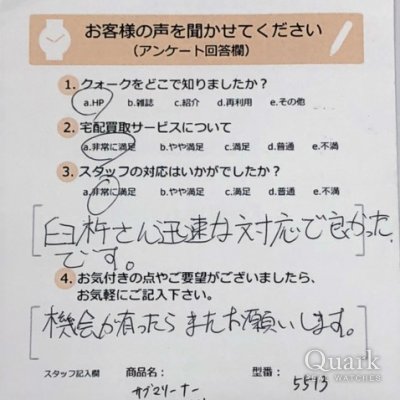 お客様の声を聞かせてください
（アンケート回答欄）
1. クォークをどこで知りましたか？
a.HP b.雑誌 c.紹介 d.再利用 e.その他
2. 宅配買取サービスについて
a.非常に満足 b.やや満足 c.満足 d.普通 e.不満
3. スタッフの対応はいかがでしたか？
a.非常に満足 b.やや満足 c.満足 d.普通 e.不満
臼杵さん迅速な対応で良かった
です。
4. お気付きの点やご要望がございましたら、
お気軽にご記入下さい。
機会が有ったらまたお願いします。
スタッフ記入欄 商品名： 型番：
サブマリーナー 5513
Quark
FINE WATCHES